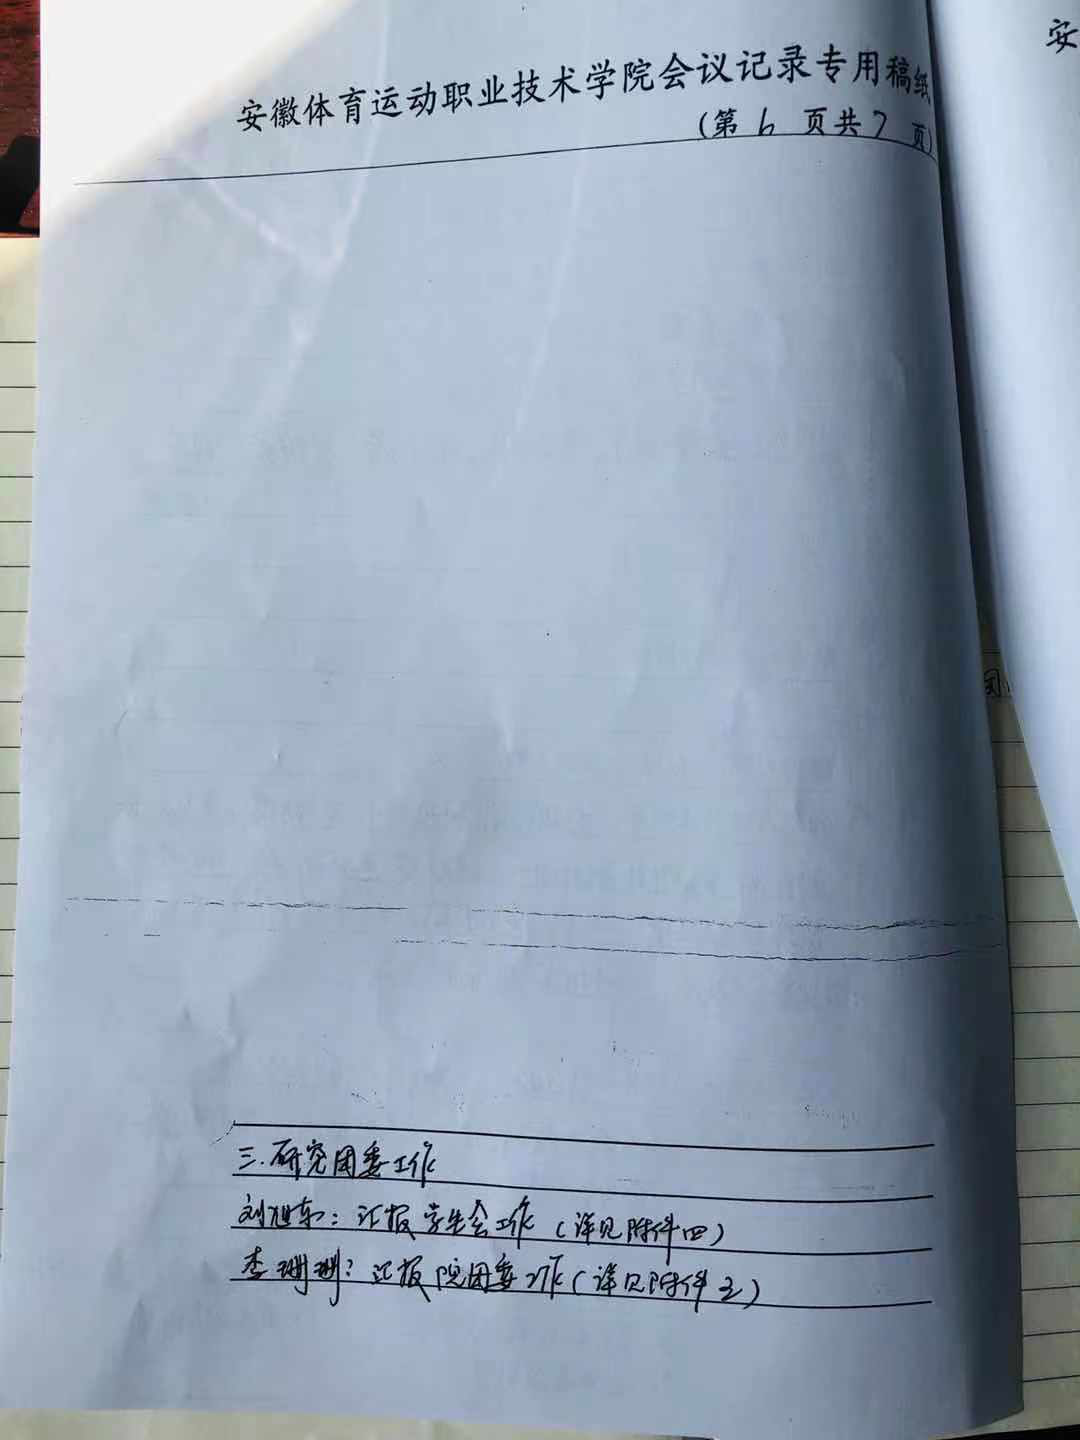 安徽体育运动职业技术学院会议记录专用稿纸
(第 6 页共 7 页)
安
三.研究团委工作
刘旭东：汇报学生会工作（详见附件四）
李珊珊：汇报院团委工作（详见附件五）
团